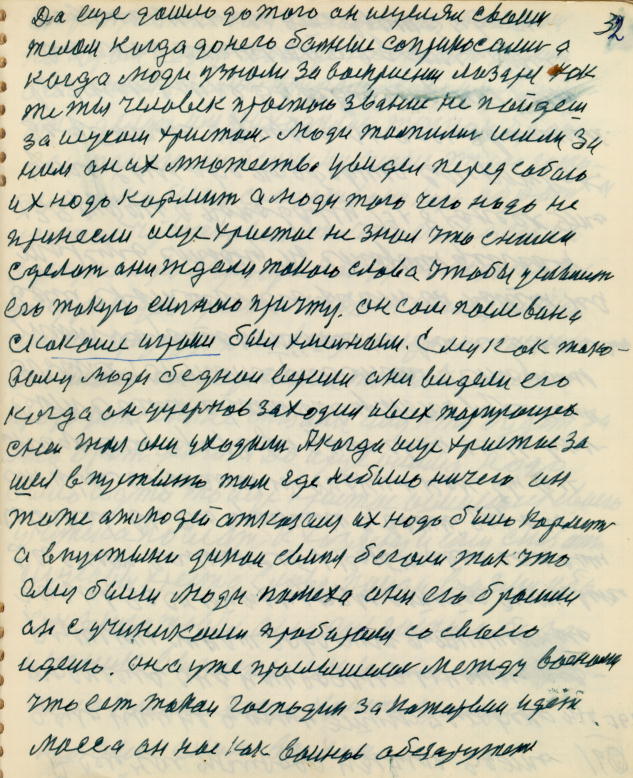 32
Да еще дошло до того он исцелял своим
телом когда до него больные соприкосались а
когда люди узнали за воскресении Лазаря так
те же человек простого звание не пойдет
за исусом христом. Люди толпили шли за
ним он их множество увидел перед собою
их надо кормит а люди того чего надо не
принесли исус христос не знал что сними
сделат они ждали такого слова чтобы услышит
его такую сильною притчу. он сам послевана
был хмельным. Ему как тако-
вому люди бедной верили они видели его
когда он
они уходили Акогда исус христос за
шел в пустыню там где небыло ничего он
тоже от людей отказался их надо было кормит
а впустыни дикаи свиня бегали так что
ему были люди помеха они его бросили
он с учиниками пробирался со своею
идеию. она уже прослышалас между воинами
что ест такои господин за которым идет
масса он нас как воинов обезаружет